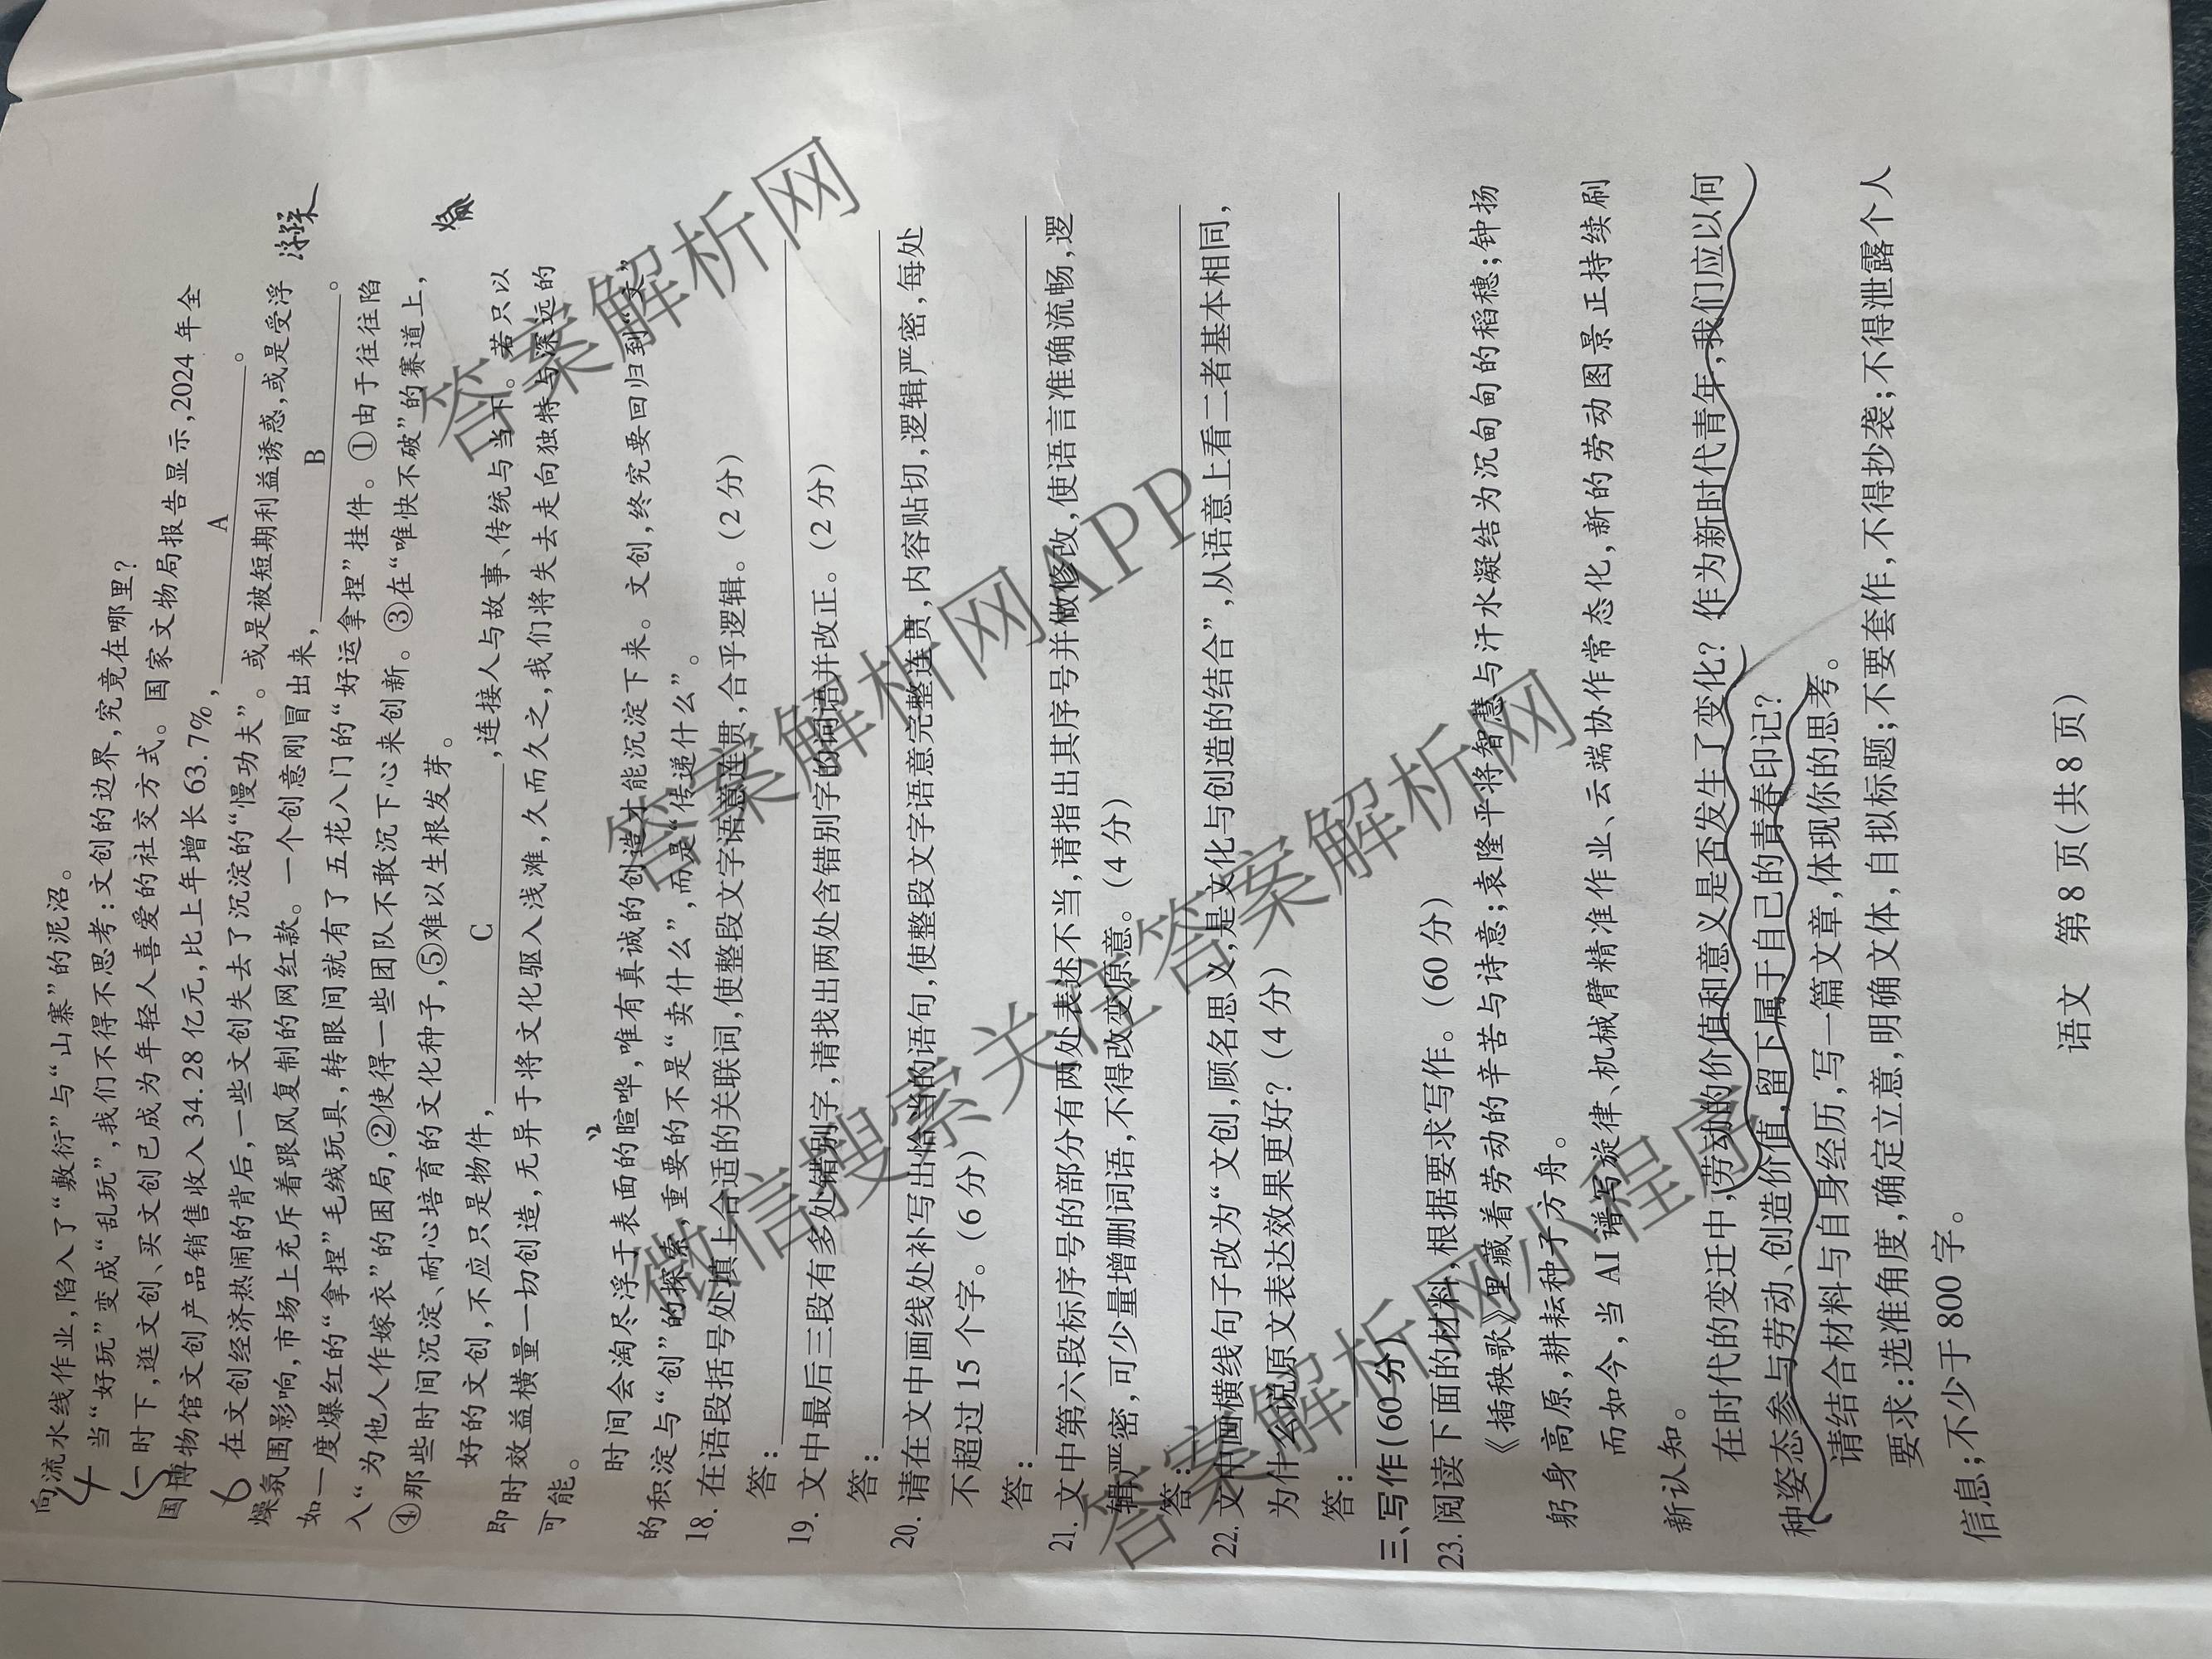 向流水线作业,陷入了“敷衍”与“山寨”的泥沼。
4 当“好玩”变成“乱玩”,我们不得不思考:文创的边界,究竟在哪里?
5 时下,逛文创、买文创已成为年轻人喜爱的社交方式。国家文物局报告显示,2024年全
国博物馆文创产品销售收入34.28亿元,比上年增长63.7%,A。
6 在文创经济热闹的背后,一些文创失去了沉淀的“慢功夫”。或是被短期利益诱惑,或是受浮
燥氛围影响,市场上充斥着跟风复制的网红款。一个创意刚冒出来,B。
如一度爆红的“拿捏”毛绒玩具,转眼间就有了五花八门的“好运拿捏”挂件。①由于往往陷
入“为他人作嫁衣”的困局,②使得一些团队不敢沉下心来创新。③在“唯快不破”的赛道上,
④那些时间沉淀、耐心培育的文化种子,⑤难以生根发芽。
好的文创,不应只是物件,C,连接人与故事、传统与当下。若只以
即时效益横量一切创造,无异于将文化驱入浅滩,久而久之,我们将失去走向独特与深远的
可能。
时间会淘尽浮于表面的喧哗,唯有真诚的创造才能沉淀下来。文创,终究要回归到“文”
的积淀与“创”的探索,重要的不是“卖什么”,而是“传递什么”。
18. 在语段括号处填上合适的关联词,使整段文字语意连贯,合乎逻辑。(2分)
答:
19. 文中最后三段有多处错别字,请找出两处含错别字的词语并改正。(2分)
答:
20. 请在文中画线处补写出恰当的语句,使整段文字语意完整连贯,内容贴切,逻辑严密,每处
不超过15个字。(6分)
答:
21. 文中第六段标序号的部分有两处表述不当,请指出其序号并做修改,使语言准确流畅,逻
辑严密,可少量增删词语,不得改变原意。(4分)
答:
22. 文中画横线句子改为“文创,顾名思义,是文化与创造的结合”,从语意上看二者基本相同,
为什么说原文表达效果更好?(4分)
答:
三、写作(60分)
23. 阅读下面的材料,根据要求写作。(60分)
《插秧歌》里藏着劳动的辛苦与诗意;袁隆平将智慧与汗水凝结为沉甸甸的稻穗;钟扬
躬身高原,耕耘种子方舟。
而如今,当AI谱写旋律、机械臂精准作业、云端协作常态化,新的劳动图景正持续刷
新认知。
在时代的变迁中,劳动的价值和意义是否发生了变化?作为新时代青年,我们应以何
种姿态参与劳动、创造价值,留下属于自己的青春印记?
请结合材料与自身经历,写一篇文章,体现你的思考。
要求:选准角度,确定立意,明确文体,自拟标题;不要套作,不得抄袭;不得泄露个人
信息;不少于800字。
语文 第8页(共8页)
浮躁
答案解析网
答案解析网APP
微信搜索关注答案解析网
答案解析网小程序